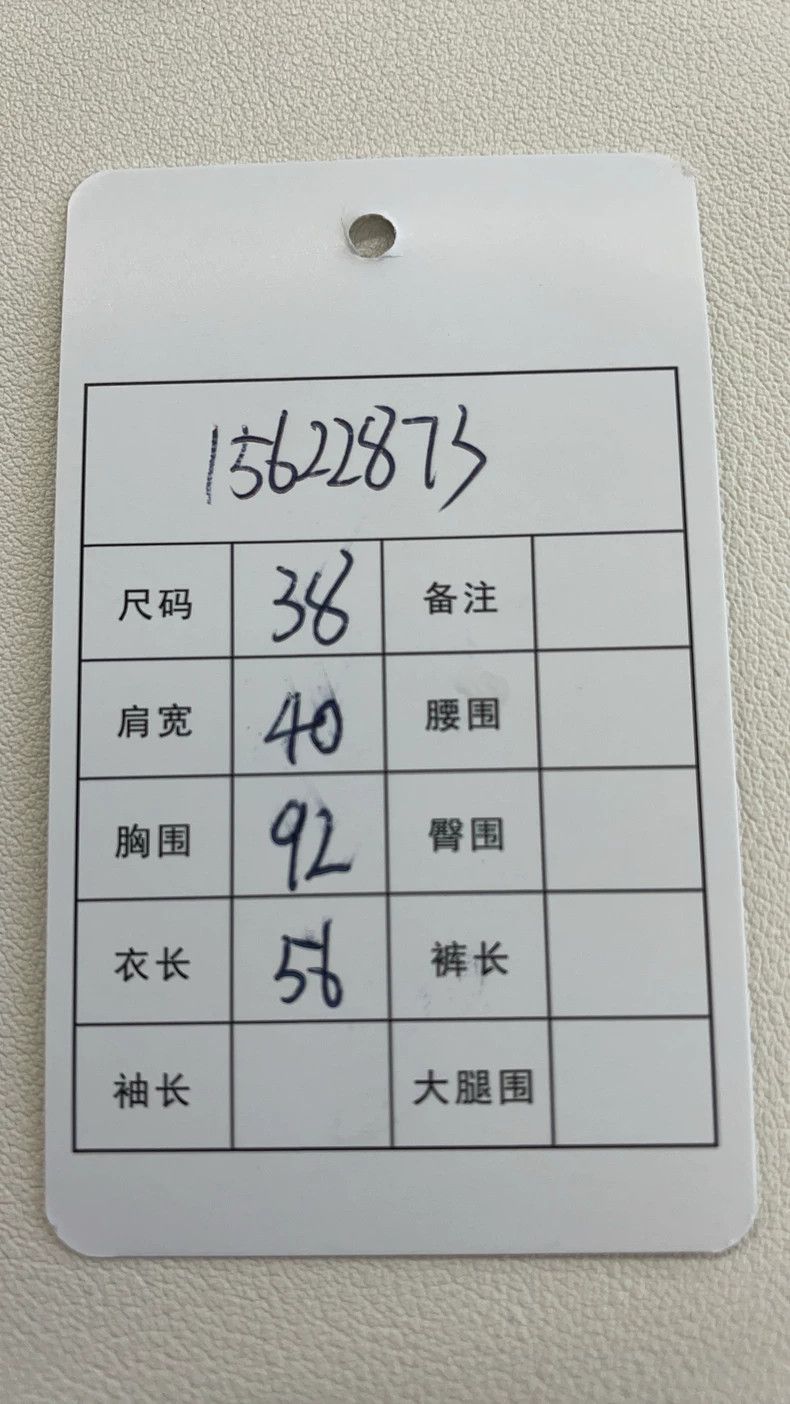 15622873
尺码 38 备注
肩宽 40 腰围
胸围 92 臀围
衣长 56 裤长
袖长 大腿围